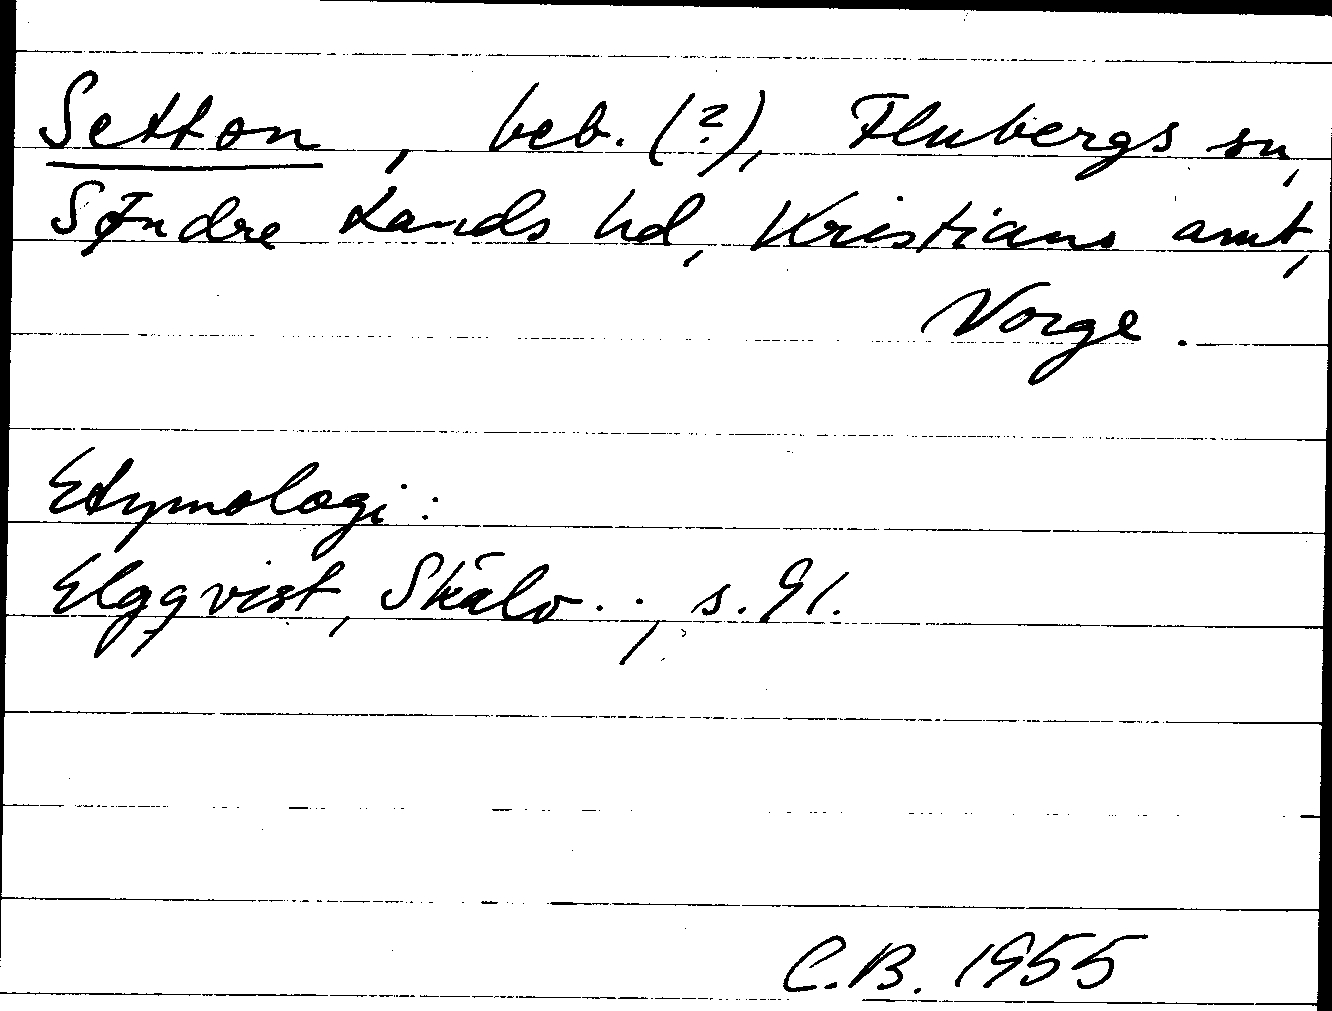 Setton, beb. (?), Flubergs sn,
Søndre Lands hd, Kristians amt,
Norge.
Etymologi:
Elgqvist, Skälv.., s. 91.
C.B. 1955